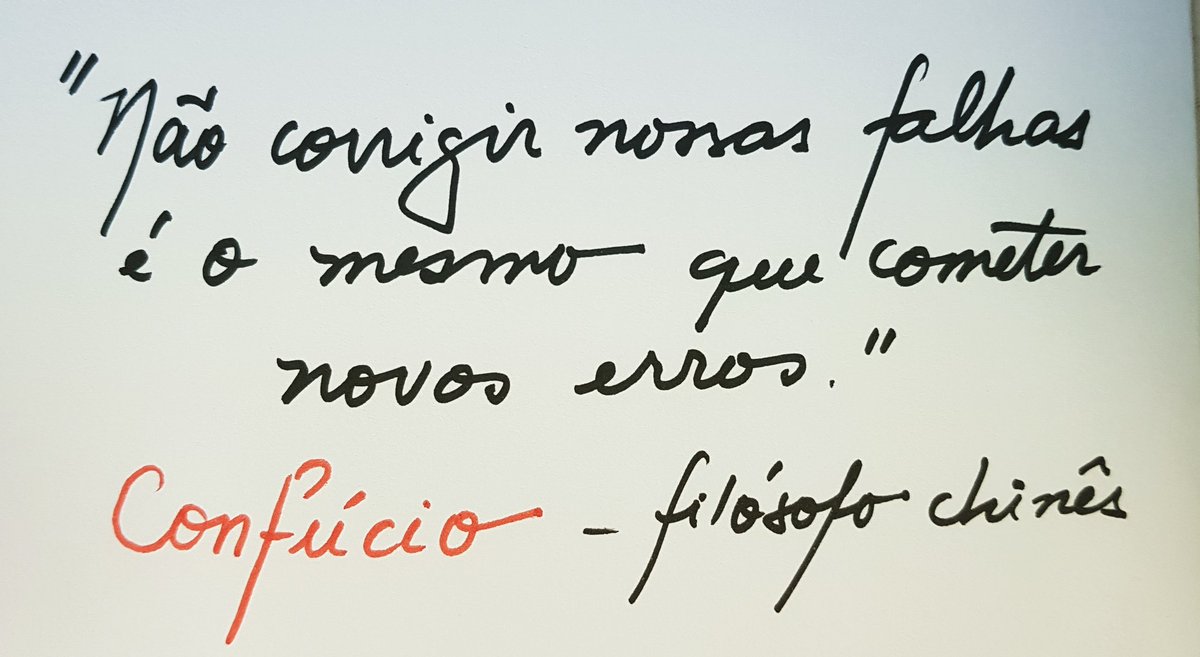 "Não corrigir nossas falhas
é o mesmo que cometer
novos erros."
Confúcio - filósofo chinês